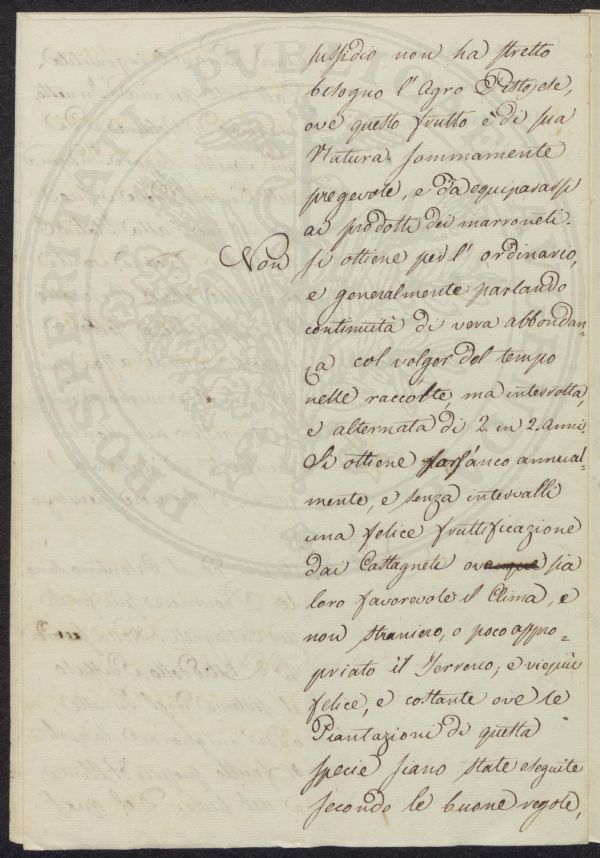 sussidio non ha stretto
bisogno l'Agro Pistojese,
ove questo frutto è di sua
Natura sommamente
pregevole, e da equipararsi
ai prodotti dei marroneti.
Non si ottiene per l'ordinario,
e generalmente parlando
continuità di vera abbondan-
za col volger del tempo
nelle raccolte, ma interrotta,
e alternata di 2. in 2. anni.
Si ottiene pars'anco annual-
mente, e senza intervalli
una felice fruttificazione
dai Castagneti ove sia
loro favorevole il Clima, e
non straniero, o poco appro-
priato il Terreno; e viepiù
felice, e costante ove le
Piantazioni di questa
specie siano state eseguite
secondo le buone regole,
PROSPERITATI PVBLICAE